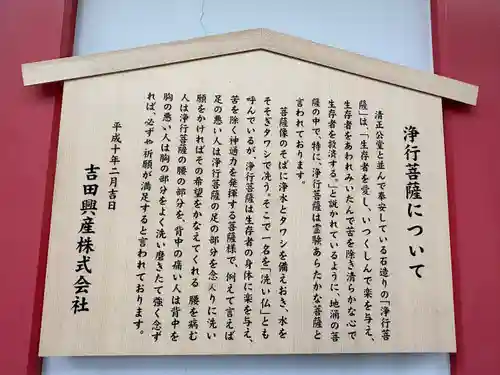 浄行菩薩について
清正公堂と並んで奉安している石造りの「浄行菩
薩」は、「生存者を愛し、いつくしんで楽を与え、
生存者をあわれみいたんで苦を除き清らかな心で
生存者を救済する。」と説かれているように、地涌の菩
薩の中で、特に、浄行菩薩は霊験あらたかな菩薩と
言われております。
菩薩像のそばに浄水とタワシを備えおき、水を
そそぎタワシで洗う。そこで一名を「洗い仏」とも
呼んでいるが、浄行菩薩は生存者の身体に楽を与え、
苦を除く神通力を発揮する菩薩様で、例えて言えば
足の悪い人は浄行菩薩の足の部分を念入りに洗い
願をかければその希望をかなえてくれる 腰を病む
人は浄行菩薩の腰の部分を、背中の痛い人は背中を
胸の悪い人は胸の部分をよく洗い磨きたて強く念ず
れば、必ずや祈願が満足すると言われております。
平成十年二月吉日
吉田興産株式会社